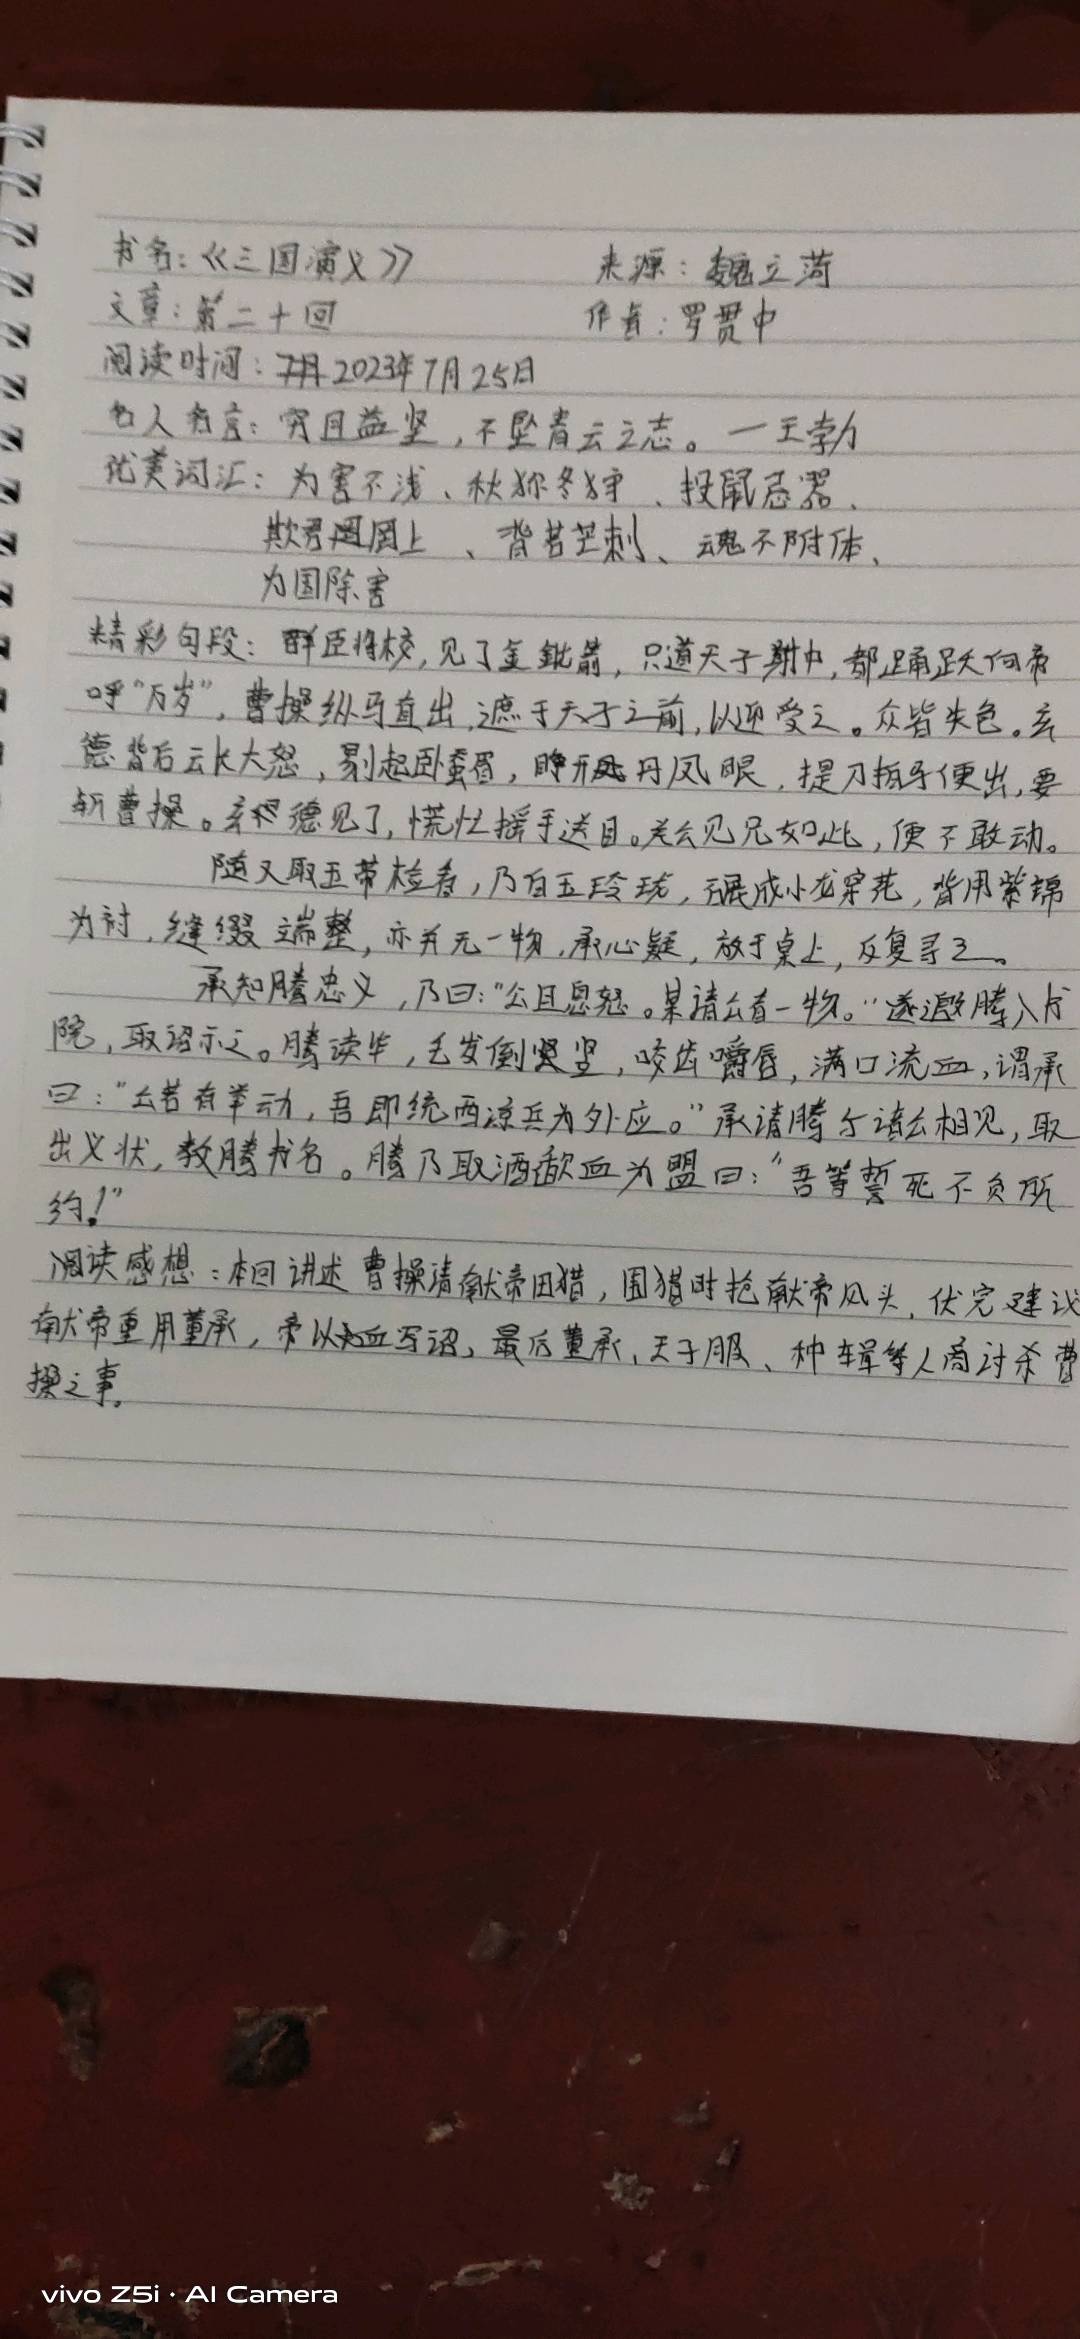 书名：《三国演义》 来源：魏立菏
文章：第二十回 作者：罗贯中
阅读时间：2023年7月25日
名人名言：穷且益坚，不坠青云之志。—王勃
优美词汇：为害不浅、秋狝冬狩、投鼠忌器、
欺君罔上、背若芒刺、魂不附体、
为国除害
精彩句段：群臣将校，见了金鈚箭，只道天子射中，都踊跃向帝
呼“万岁”，曹操纵马直出，遮于天子之前，以迎受之。众皆失色。玄
德背后云长大怒，剔起卧蚕眉，睁开丹凤眼，提刀拍马便出，要
斩曹操。玄德见了，慌忙摇手送目。关公见兄如此，便不敢动。
随又取玉带检看，乃白玉玲珑，碾成小龙穿花，背用紫锦
为衬，缝缀端整，亦并无一物，承心疑，放于桌上，反复寻之。
承知腾忠义，乃曰：“公且息怒。某请公看一物。”遂邀腾入书
院，取诏示之。腾读毕，毛发倒竖，咬齿嚼唇，满口流血，谓承
曰：“公若有举动，吾即统西凉兵为外应。”承请腾与诸公相见，取
出义状，教腾书名。腾乃取酒歃血为盟曰：“吾等誓死不负所
约！”
阅读感想：本回讲述曹操请献帝田猎，围猎时抢献帝风头，伏完建议
献帝重用董承，帝以血写诏，最后董承、王子服、种辑等人商讨杀曹
操之事。
vivo Z5i · AI Camera